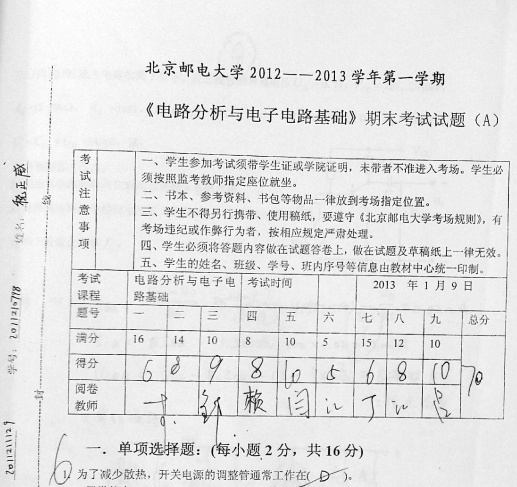 北京邮电大学2012——2013学年第一学期
《电路分析与电子电路基础》期末考试试题（A）
考试注意事项
一、学生参加考试须带学生证或学院证明，未带者不准进入考场。学生必
须按照监考教师指定座位就坐。
二、书本、参考资料、书包等物品一律放到考场指定位置。
三、学生不得另行携带、使用稿纸，要遵守《北京邮电大学考场规则》，有
考场违纪或作弊行为者，按相应规定严肃处理。
四、学生必须将答题内容做在试题答卷上，做在试题及草稿纸上一律无效。
五、学生的姓名、班级、学号、班内序号等信息由教材中心统一印制。
考试课程 电路分析与电子电路基础 考试时间 2013 年 1 月 9 日
题号 一 二 三 四 五 六 七 八 九 总分
满分 16 14 10 8 10 5 15 12 10
得分 6 8 9 8 10 5 6 8 10 70
阅卷教师 赖 闫 江 丁 江
一．单项选择题：(每小题 2 分，共 16 分)
6
1. 为了减少散热，开关电源的调整管通常工作在( D )。
姓名：
学号：
线
封